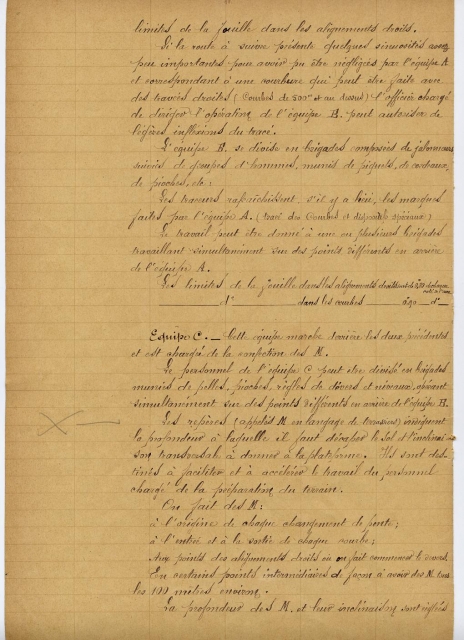 limites de la fouille dans les alignements droits.
Si la route à suivre présente quelques sinuosités assez
peu importantes pour avoir pu être négligées par l'équipe A
et correspondant à une courbure qui peut être faite avec
des travées droites (Courbes de 500m et au dessus) l'officier chargé
de diriger l'opération de l'équipe B. peut autoriser de
légères inflexions du tracé.
L'équipe B. se divise en brigades composées de jalonneurs
suivis de groupes d'hommes, munis de piquets, de cordeaux,
de pioches, etc.
Les traceurs rafraîchissent, s'il y a lieu, les marques
faites par l'équipe A. (tracé des Courbes et dispositifs spéciaux)
Le travail peut être donné à une ou plusieurs brigades
travaillant simultanément sur des points différents en arrière
de l'équipe A.
Les limites de la fouille dans les alignements droits
do dans les courbes do
Equipe C. — Cette équipe marche derrière les deux précédentes
et est chargée de la confection des M.
Le personnel de l'équipe C peut être divisé en brigades
munies de pelles, pioches, règles de dévers et niveaux, opérant
simultanément sur des points différents en arrière de l'équipe B.
Les repères (appelés M en langage de terrassiers) indiquent
la profondeur à laquelle il faut déraper le sol et l'inclinai-
son transversale à donner à la plateforme. Ils sont des-
tinés à faciliter et à accélérer le travail du personnel
chargé de la préparation du terrain.
On fait des M:
à l'origine de chaque changement de pente;
à l'entrée et à la sortie de chaque courbe;
Aux points des alignements droits où on fait commencer le dévers.
En certains points intermédiaires de façon à avoir des M. tous
les 100 mètres environ.
La profondeur des M. et leur inclinaison sont réglées